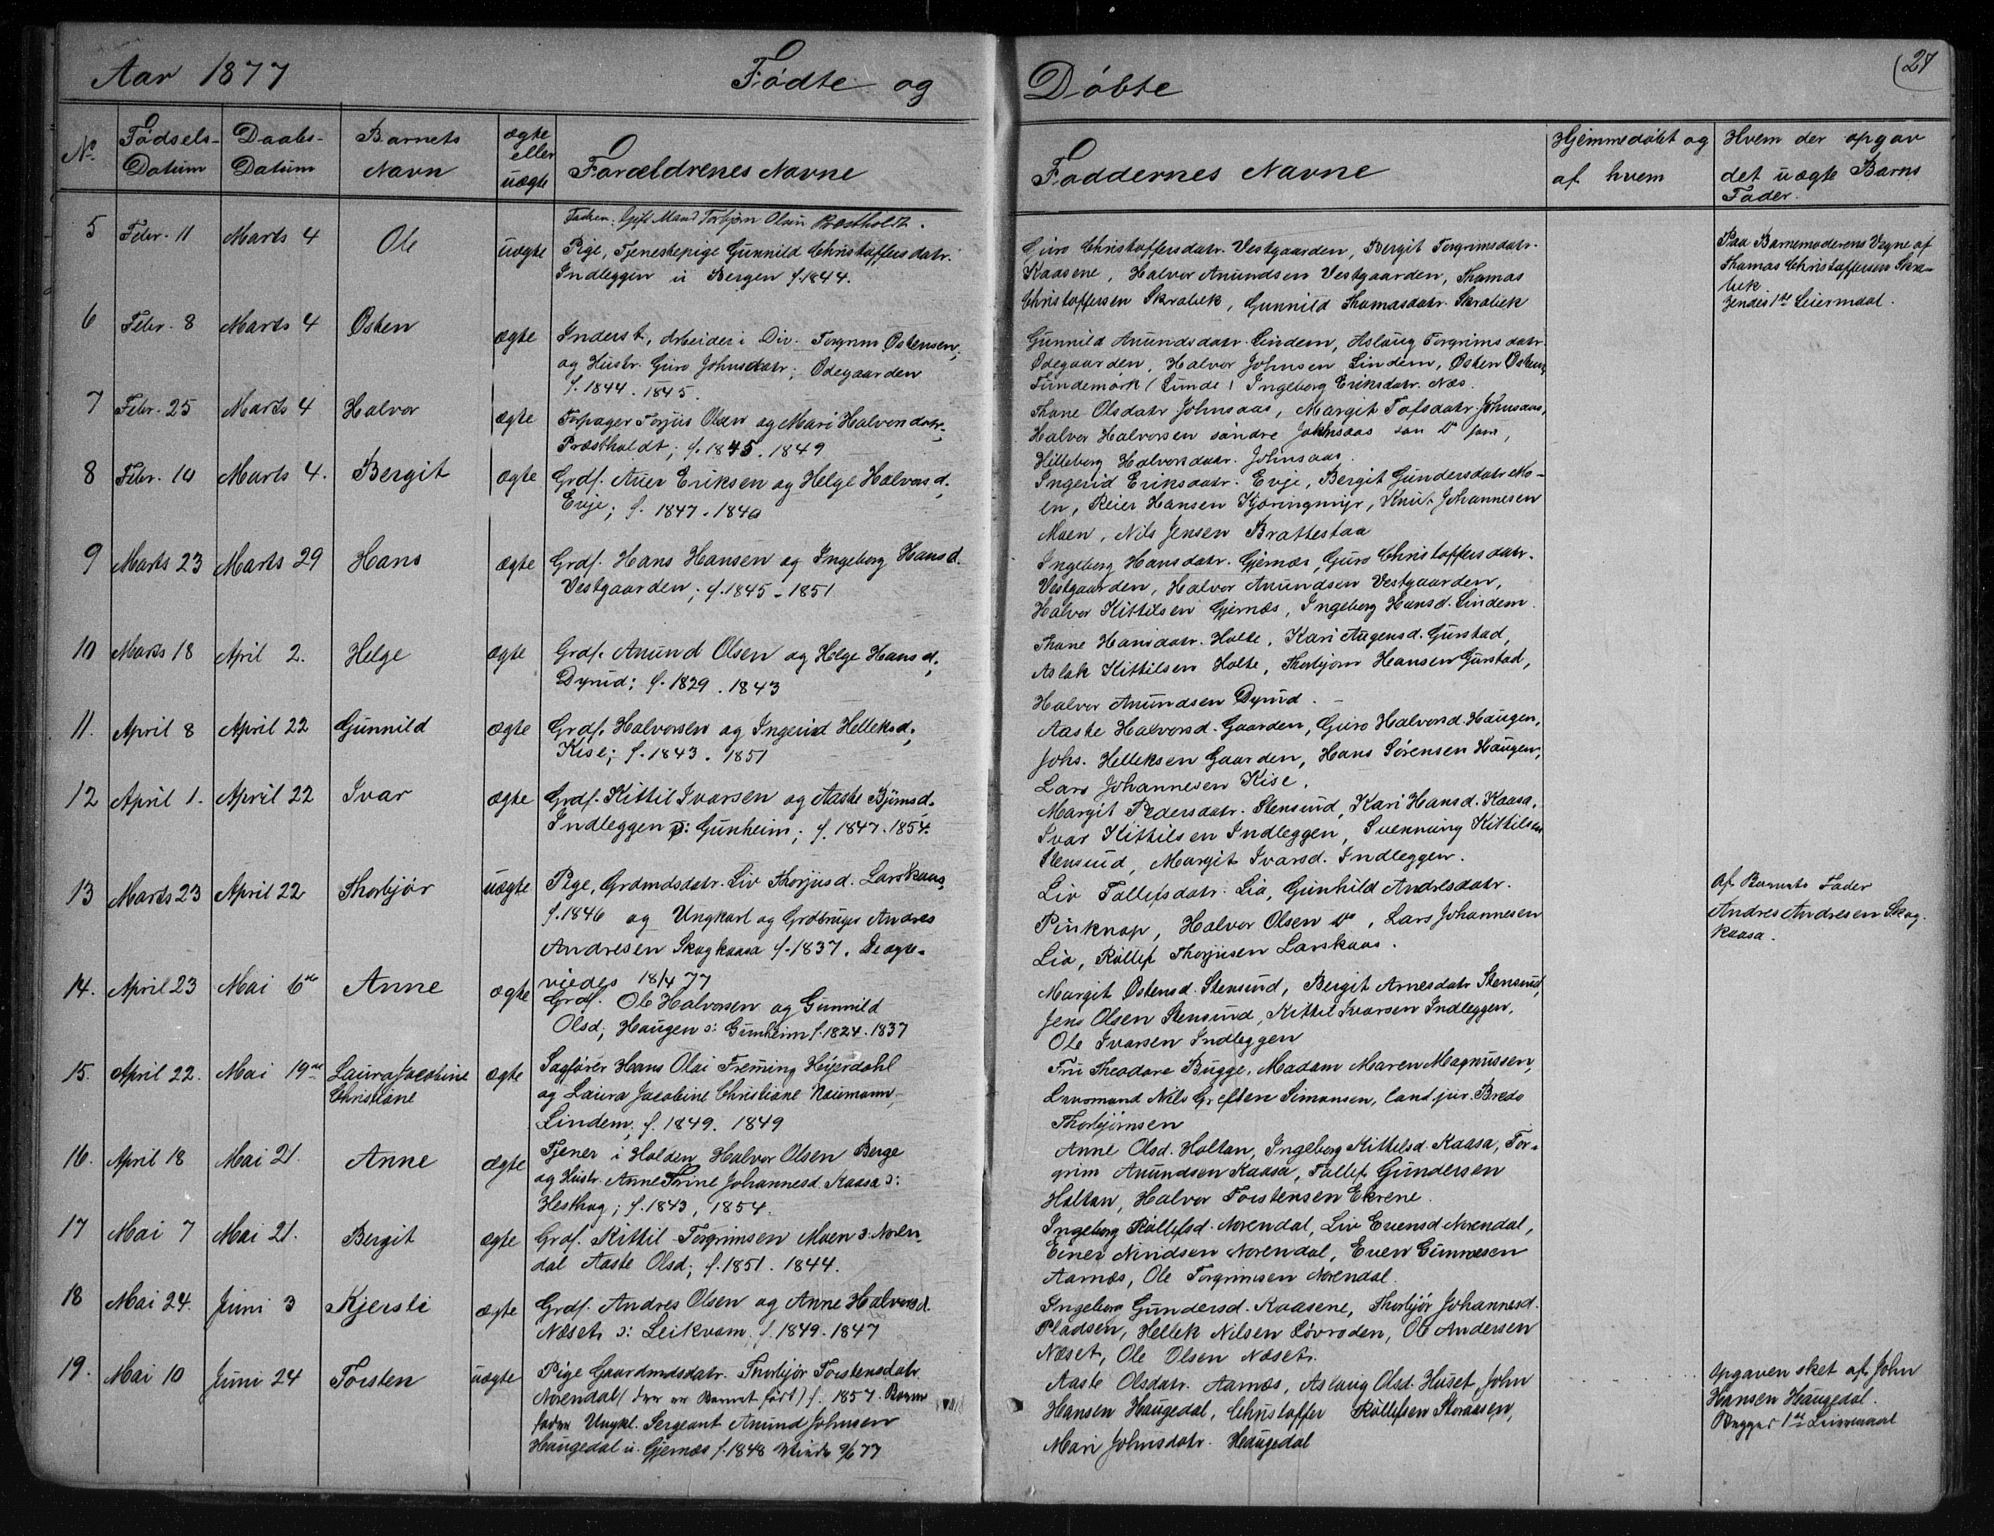 Aar 1877 Fødte og Døbte
(27
No. Fødsels-Datum Daabs-Datum Barnets Navn ægte eller uægte Forældrenes Navne Faddernes Navne Hjemmedøbt og af hvem Hvem der opgav det uægte Barns Fader.
5 Febr. 11 Marts 4 Ole uægte
Fadren: Gift Mand Torbjørn Olsen Præstholdt.
Pige, Tjenestepige Gunnild Christoffersdatr.
Indleggen u Bergen f. 1844.
Guro Christoffersdatr. Vestgaarden, Bergit Torgrimsdatr.
Kaasene, Halvor Anundsen Vestgaarden, Thomas
Christoffersen Skrabek, Gunnild Thomasdatr. Skrabek
Paa Barnemoderens Vegne af
Thomas Christoffersen Skra-
bek.
hendes 1ste Leiermaal.
6 Febr. 8 Marts 4 Østen ægte
Inderst, Arbeider i Div. Torgrim Østensen,
og Hustr. Guro Johnsdatr; Ødegaarden
f. 1844. 1845.
Gunnild Anundsdatr. Lindem, Aslaug Torgrimsdatr.
Ødegaarden, Halvor Johnsen Lindem, Østen Østens.
Tundemork (Lunde) Ingeborg Eriksdatr. Næs.
7 Febr. 25 Marts 4 Halvor ægte
Forpagter Torjus Olsen og Mari Halvorsdatr;
Præstholdt; f. 1845. 1849
Thone Olsdatr Johnsaas, Margit Tofsdatr Johnsaas,
Halvor Halvorsen søndre Johnsaas
Hilleborg Halvorsdatr. Johnsaas.
8 Febr. 10 Marts 4. Bergit ægte
Grdf. Auer Eriksen og Helge Halvorsd,
Evje; f. 1847. 1840
Ingerid Eriksdatr. Evje, Bergit Gundersdatr Mo-
en, Reier Hansen Kjøringmyr, Knut Johannesen
Moen, Nils Jensen Brattestaa
9 Marts 23 Marts 29 Hans ægte
Grdf. Hans Hansen og Ingeborg Hansd.
Vestgaarden; f. 1845 - 1851
Ingeborg Hansdatr. Gjernæs, Guro Christoffersdatr.
Vestgaarden, Halvor Anundsen Vestgaarden,
Halvor Kittilsen Gjernæs, Ingeborg Hansd. Lindem.
10 Marts 18 April 2. Helge ægte
Grdf. Anund Olsen og Helge Hansd,
Dyrud; f. 1829. 1843
Thone Hansdatr. Holte, Kari Augensd. Gurstad,
Aslak Kittilsen Holte, Thorbjørn Hansen Gurstad,
Halvor Anundsen Dyrud.
11. April 8 April 22 Gunnild ægte
Grdf. Halvorsen og Ingerid Helleksd;
Kise; f. 1843. 1851
Aaste Halvorsd. Gaarden, Guro Halvorsd. Haugen,
Johs. Helleksen Gaarden, Hans Sørensen Haugen,
Lars Johannesen Kise.
12 April 1. April 22 Ivar ægte
Grdf. Kittil Ivarsen og Aaste Bjørnsd.
Indleggen ɔ: Gunheim; f. 1847. 1854.
Margit Pedersdatr. Stensund, Kari Hansd. Kaasa,
Ivar Kittilsen Indleggen, Svennung Kittilsen
Stensund, Margit Ivarsd. Indleggen.
13 Marts 23 April 22 Thorbjør uægte
Pige, Grdmdsdatr. Liv Thorjusd. Larskaas,
f. 1846 og Ungkarl og Grdbruger Andres
Andresen Skogkaasa f. 1837. De ægte-
viedes 18/4 77
Liv Tollefsdatr. Lia, Gunhild Andresdatr.
Pinknap, Halvor Olsen Do, Lars Johannesen
Lia, Rollef Thorjusen Larskaas.
Af Barnets Fader
Andres Andresen Skog-
kaasa.
14. April 23 Mai 6te Anne ægte
Grdf. Ole Halvorsen og Gunnild
Olsd; Haugen ɔ: Gunheim f. 1824. 1837
Margit Østensd. Stensund, Bergit Arnesdatr Stensund,
Jens Olsen Stensund, Kittil Ivarsen Indleggen,
Ole Ivarsen Indleggen
15. April 22. Mai 19de Laura Jacobine Christiane ægte
Sagfører Hans Olai Freming Heyerdahl
og Laura Jacobine Christiane Naumann,
Lindem, f. 1849. 1849
Fru Theodore Bugge, Madam Maren Magnussen,
Lensmand Nils Greften Simonsen, Cand. jur. Bredo
Thorbjørnsen
16. April 18 Mai 21. Anne ægte
Tjener i Holden, Halvor Olsen Berge
og Hustr. Anne Trine Johannesd. Kaasa ɔ:
Hesthag; f. 1843, 1854.
Anne Olsd. Holtan, Ingeborg Kittilsd. Kaasa, Tor-
grim Anundsen Kaasa, Tollef Gundersen
Holtan, Halvor Torstensen Ekrene.
17 Mai 7 Mai 21. Bergit ægte
Grdf. Kittil Torgrimsen Moen ɔ: Noren-
dal Aaste Olsd; f. 1851. 1844.
Ingeborg Rollefsd. Norendal, Liv Evensd Norendal,
Einer Niridsen Norendal, Even Gunnesen
Aarnæs, Ole Torgrimsen Norendal.
18 Mai 24. Juni 3 Kjersti ægte
Grdf. Andres Olsen og Anne Halvorsd.
Næset ɔ: Leikvam, f. 1849. 1847
Ingeborg Gundersd. Kaasene, Thorbjør Johannesd.
Pladsen, Hellek Nilsen Løvroden, Ole Andersen
Næset, Ole Olsen Næset.
19. Mai 10 Juni 24 Torsten uægte
Pige Gaardmdsdatr. Thorbjør Torstensdatr
Norendal (der er Barnet født) f. 1857. Barne-
fader Ungkl. Sergeant Anund Johnsen
Haugedal u. Gjernæs f. 1848
Aaste Olsdatr. Aarnæs, Aslaug Olsd. Huset, John
Hansen Haugedal, Christoffer Rollefsen Storaasen,
Mari Johnsdatr. Haugedal
Opgaven sket af John
Hansen Haugedal.
Begges 1ste Leiermaal